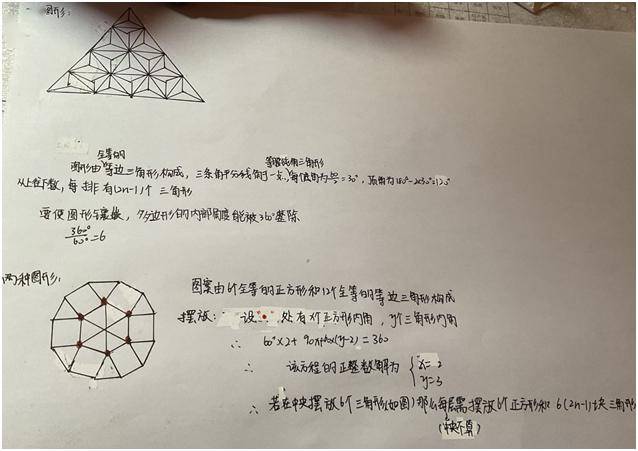 一 图形:
全等的
等腰钝角三角形
图形由等边三角形构成, 三条角平分线每于一点, 每低角为60°/2=30°, 顶角为180°-2x30°=120°
从上往下数, 每排有(2n-1)个三角形
要使图形与密铺, 多边形的内部角度能被360°整除
360°/60°=6
两种图形:
图案由6个全等的正方形和12个全等的等边三角形构成
摆放: 设 处有x个正方形内角, y个三角形内角
∴ 60°×2+90x+60x(y-2)=360
∴ 该方程的正整数解为 { x=2
y=3
∴ 若在中央摆放6个三角形(如图)那么每层需摆放6个正方形和6(2n-1)块三角形
(中央不算)